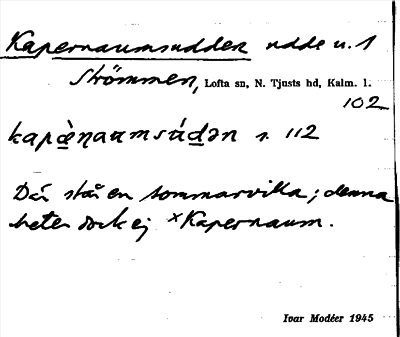 Kapernaumsudden udde u. 1
Strömmen, Lofta sn, N. Tjusts hd, Kalm. l.
102
kapæ̀ṇaumsúdən s. 112
Där står en sommarvilla; denna
heter dock ej ×Kapernaum.
Ivar Modéer 1945